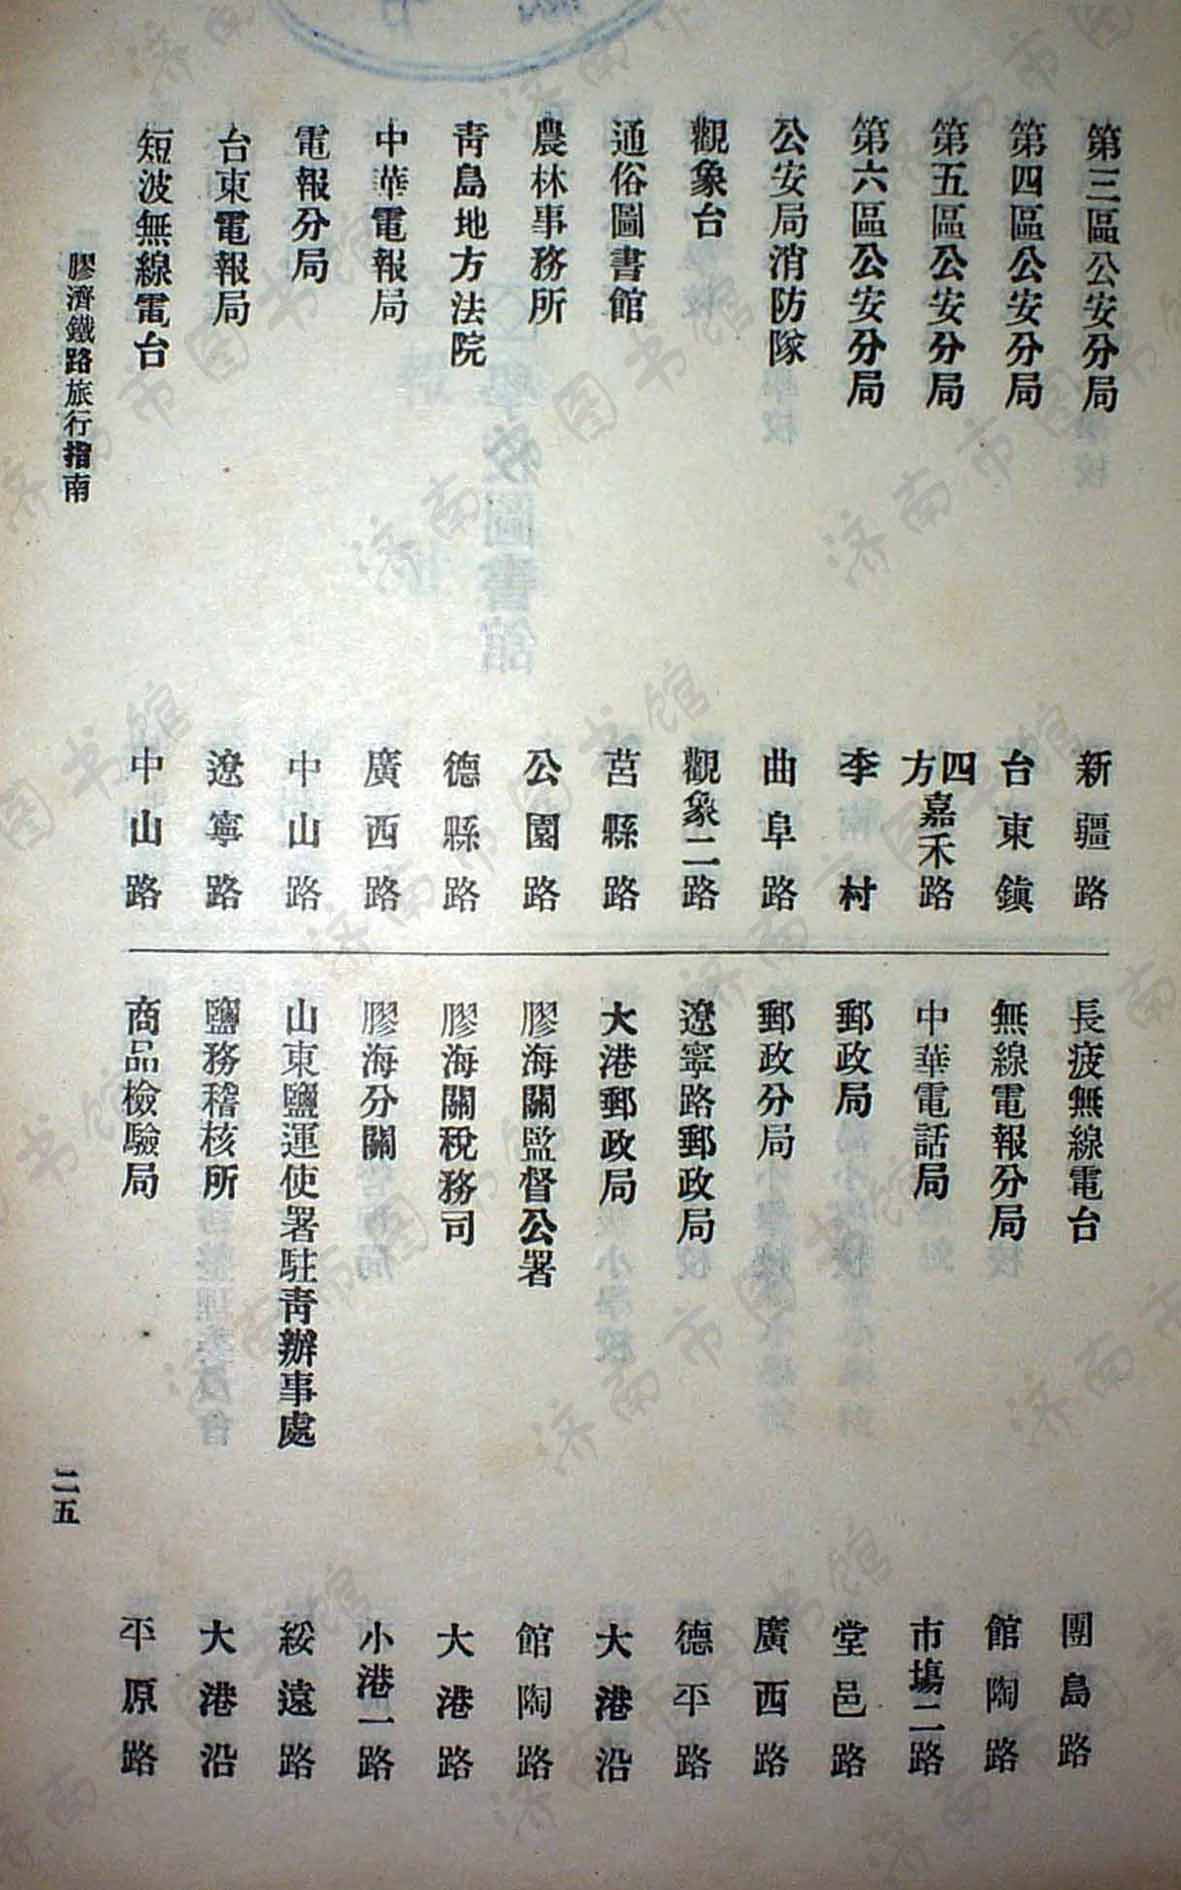 第三區公安分局 新疆路
第四區公安分局 台東鎮
第五區公安分局 四方嘉禾路
第六區公安分局 李村
公安局消防隊 曲阜路
觀象台 觀象二路
通俗圖書館 莒縣路
農林事務所 公園路
靑島地方法院 德縣路
中華電報局 廣西路
電報分局 中山路
台東電報局 遼寧路
短波無線電台 中山路
長疲無線電台 團島路
無線電報分局 館陶路
中華電話局 市塲二路
郵政局 堂邑路
郵政分局 廣西路
遼寧路郵政局 德平路
大港郵政局 大港沿
膠海關監督公署 館陶路
膠海關稅務司 大港路
膠海分關 小港一路
山東鹽運使署駐靑辦事處 綏遠路
鹽務稽核所 大港沿
商品檢驗局 平原路
膠濟鐵路旅行指南
二五
济南市图书馆